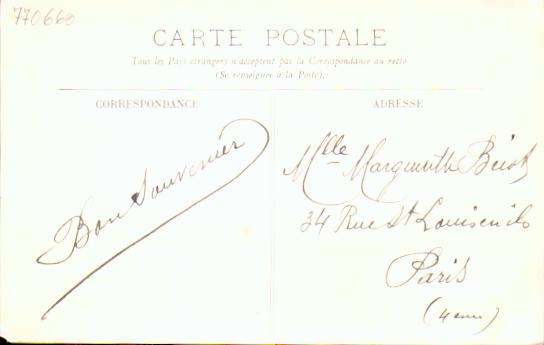 770660
CARTE POSTALE
Tous les Pays étrangers n'acceptent pas la Correspondance au recto
(Se renseigner à la Poste).
CORRESPONDANCE
ADRESSE
Bon Souvenir
Mlle Marguerite
34 Rue St Louis en ile
Paris
(4 em)